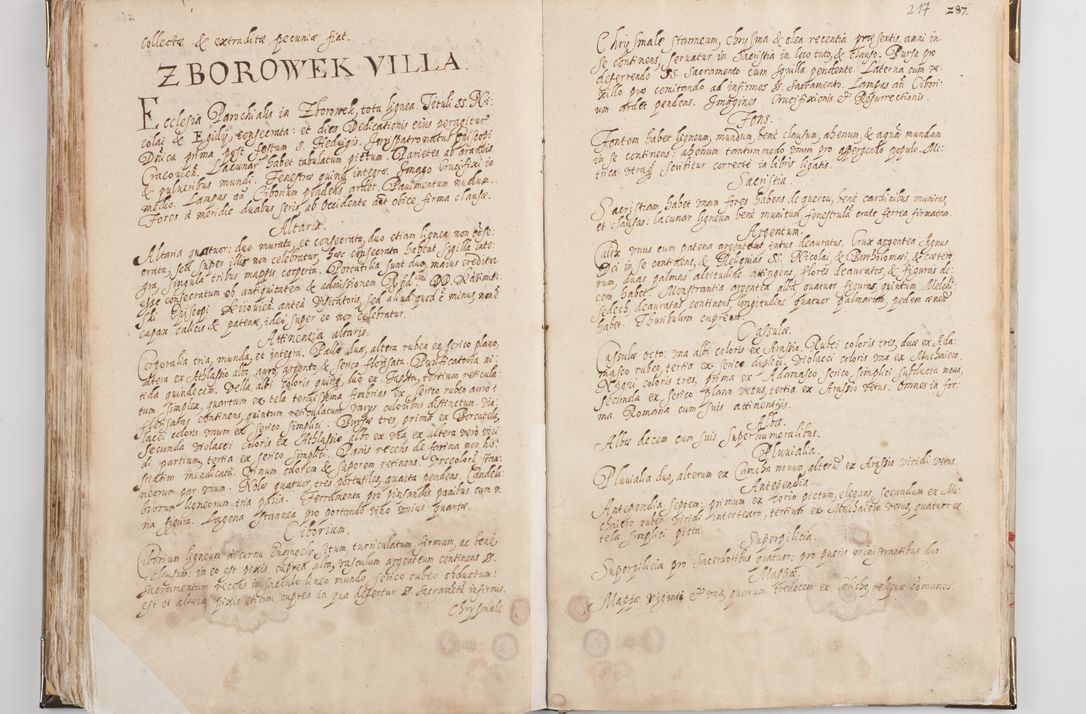 collectæ & extraditæ pecuniæ fiat.
ZBOROWEK VILLA
Ecclesia Parochialis in Zborowek, tota lignea. Tituli SS. Ni:
colai & Egidij, consecrata: et dies Dedicationis eius peragitur
Dnica prima post festum S. Hedvigis. Iurispatronatus Episcopi
Cracovien. Lacunar habet tabulatum pictum. Parietes ab araneis
& pulveribus mundi. Fenestræ quinq integræ. Imago Crucifixi in
medio. Lampas an Ciborium pendens ardet. Pavimentum nudum.
Fores à meridie duabus seris ab Occidente aut obice firma clausæ.
Altaria.
Altaria quatuor: duo murata, et consecrata, duo etiam lignea non conse:
crata, sed super illis non celebratur, hæc consecrata habent sigilla inte:
gra, singula tribus mappis cooperta. Portatilia sunt duo, maius creditur
esse consecratum ob antiquitatem & admissionem Rndi. DD. Maximi:
liani Episcopi Kiiovien. antea Visitatoris, sed aliud quod è minus non è
capax calicis & patenæ, ideo super eo non celebratur.
Attinentia altaris.
Corporalia tria, munda, et integra. Pallæ duæ, altera rubea ex serico plano,
altera ex Athlasio albo, auro, argento, & serico florisata. Purificatoria ni:
tida quindecem. Vella albi coloris quinq, duo ex Tuphtu, tertium reticula:
tum simplex, quartum ex tela tenuissima fimbrias ex serico rubeo auro
florisatas continens, quintum reticulatum varijs coloribus distinctum. Vio:
lacei coloris unum ex serico simplici. Bursæ tres, prima ex Bercatella,
secunda violacei coloris ex Athlasio albo ex una, ex altera vero viri
di partium, tertia ex serico simplici. Panis recens de farina non ho:
stiatim mendicata. Vinum odorem & saporem retinens. Vrceolorum stan:
neorum par unum. Nolæ quatuor, tres portatiles, quarta pendens. Candela
brorum ligneorum tria paria. Ferramenta pro pinsendis panibus cum u:
na figura. Lagena stannea pro portando vino unius quartæ.
Ciborium.
Ciborium ligneum à cornu Evangelij situm, turriculatum, firmum, ac bene
clausum: in eo est pixis cuprea alta, vasculum argenteum continens S.
Sacramentum recens in sacculo lineo mundo serico rubeo obductum:
est et altera pixis etiam cuprea in qua defertur S. Sacramentum infirmis.
Chrysmale
217 287.
Chrysmale stanneum, chrysma & olea recentia præsentis anni in
se continens, servatur in Sacristia in loco tuto, & clauso. Bursa pro
deferendo SS. Sacramento cum squilla pendente. Laterna cum ve:
xillo pro comitando ad infirmos S. Sacramento. Lampas an Cibori:
um ardet pendens. Imagines Crucifixionis & Resurrectionis.
Fons.
Fontem habet ligneum, mundum, bene clausum, ahenum, & aquam mundam
in se continens: ahenum tantummodo unum pro aspergendo populo. Me:
trica utraq scribitur correctè in libris ligatis.
Sacristia.
Sacristiam habet unam fores habens de quercu, bene cardinibus munitas,
et clausas: lacunar ligneum bene munitum fenestrula crate ferrea firmatum.
Argentum.
Calix unus cum patena argenteus intus deauratus. Crux argentea Agnus
Dei in se continens, & Reliquias SS. Nicolai, & Bartholomæi, & cætero
rum, duas palmas altitudine attingens, flores deauratos, & figuras de:
cem habet. Monstrantia argentea alba quatuor figuras, quintum Melchi:
sedech deauratas continens, longitudine quatuor palmarum, pedem æneum
habet. Thuribulum cupreum.
Casulæ.
Casulæ octo: una albi coloris ex Araspio. Rubei coloris tres, duæ ex Ada
masco rubeo, tertia ex serico duplici. Violacei coloris una ex Muchaiero.
Nigri coloris tres, prima ex Adamasco serico, simplici subducta nova,
secunda ex serico plano vetus, tertia ex Araspio vetus. Omnes in for:
ma Romana cum suis attinentijs.
Albæ.
Albæ decem cum suis superhumeralibus.
Pluvialia.
Pluvialia duo, alterum ex Camcha novum, alterum ex Araspio viridi vetus.
Antependia.
Antependia septem; primum ex corio pictum, elegans, secundum ex Mu
chaiero rubeo viridi intertexto, tertium ex Muchaiero vetus, quatuor ex
tela simplici picta.
Superpilicia.
Superpilicia pro Sacerdotibus quatuor: pro pueris ministrantibus duo
Mappæ.
Mappæ viginti & una, quarum tredecem ex Colicho, reliquæ communes.